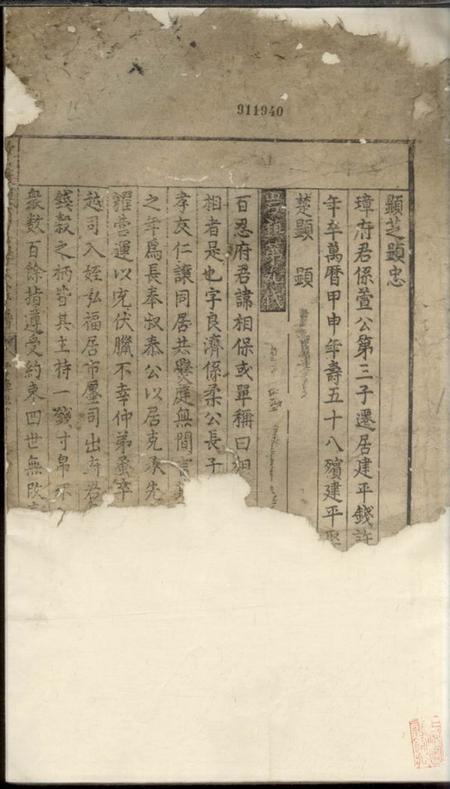 911940
顯芝顯忠
璋府君係萱公第三子遷居建平錢許
年卒萬曆甲申年壽五十八殯建平
楚顯 顯
第九代
百忍府君諱相保或單稱曰相
相者是也字良濟係柔公長子
孝友仁讓同居共爨庭無間言
之年爲長奉叔泰公以居克承先
躍營運以充伏臘不幸仲弟蚤卒
越司入姪弘福居市廛司出弟若
錢穀之柄皆其主持一錢寸帛不
衆數百餘指遵受約束四世無改